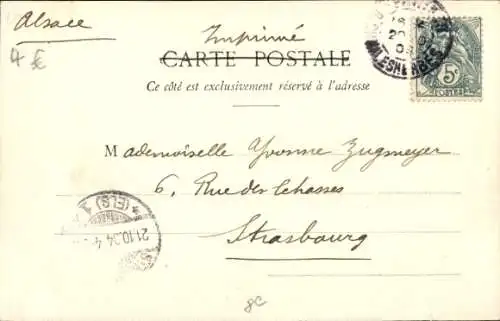 Alsace
4 €
Imprimé
CARTE POSTALE
Ce côté est exclusivement réservé à l'adresse
5c
POSTES
MALESHERBES
Mademoiselle Yvonne Zugmeyer
6, Rue des Echasses
Strasbourg
(ELS)
21.10.04.4
8C